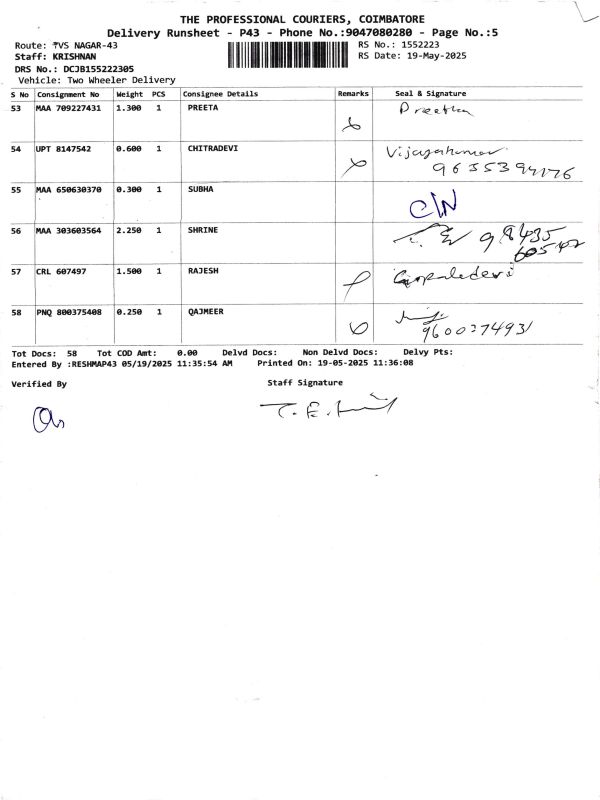 THE PROFESSIONAL COURIERS, COIMBATORE
Delivery Runsheet - P43 - Phone No.:9047080280 - Page No.:5
Route: TVS NAGAR-43
RS No.: 1552223
Staff: KRISHNAN
RS Date: 19-May-2025
DRS No.: DCJB155222305
Vehicle: Two Wheeler Delivery
S No Consignment No Weight PCS Consignee Details Remarks Seal & Signature
53 MAA 709227431 1.300 1 PREETA Preetha
54 UPT 8147542 0.600 1 CHITRADEVI Vijayakumar
9655394176
55 MAA 650630370 0.300 1 SUBHA
C/N
56 MAA 303603564 2.250 1 SHRINE 98435
57 CRL 607497 1.500 1 RAJESH Gopaledevi
58 PNQ 800375408 0.250 1 QAJMEER
9600374931
Tot Docs: 58 Tot COD Amt: 0.00 Delvd Docs: Non Delvd Docs: Delvy Pts:
Entered By :RESHMAP43 05/19/2025 11:35:54 AM Printed On: 19-05-2025 11:36:08
Verified By Staff Signature